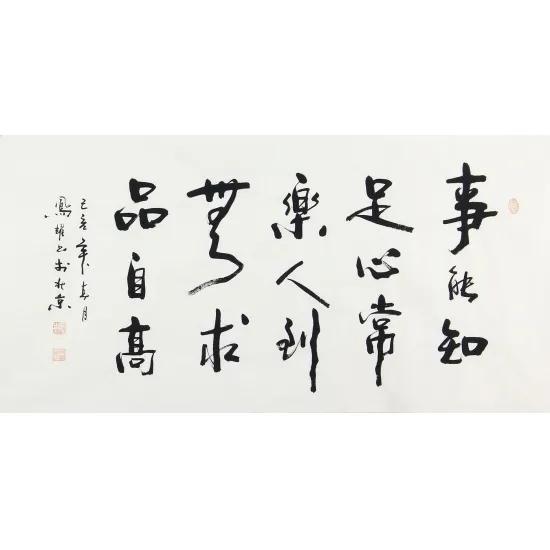 事能知
足心常
樂人到
無求
品自高
己亥年
鳳 书於北京